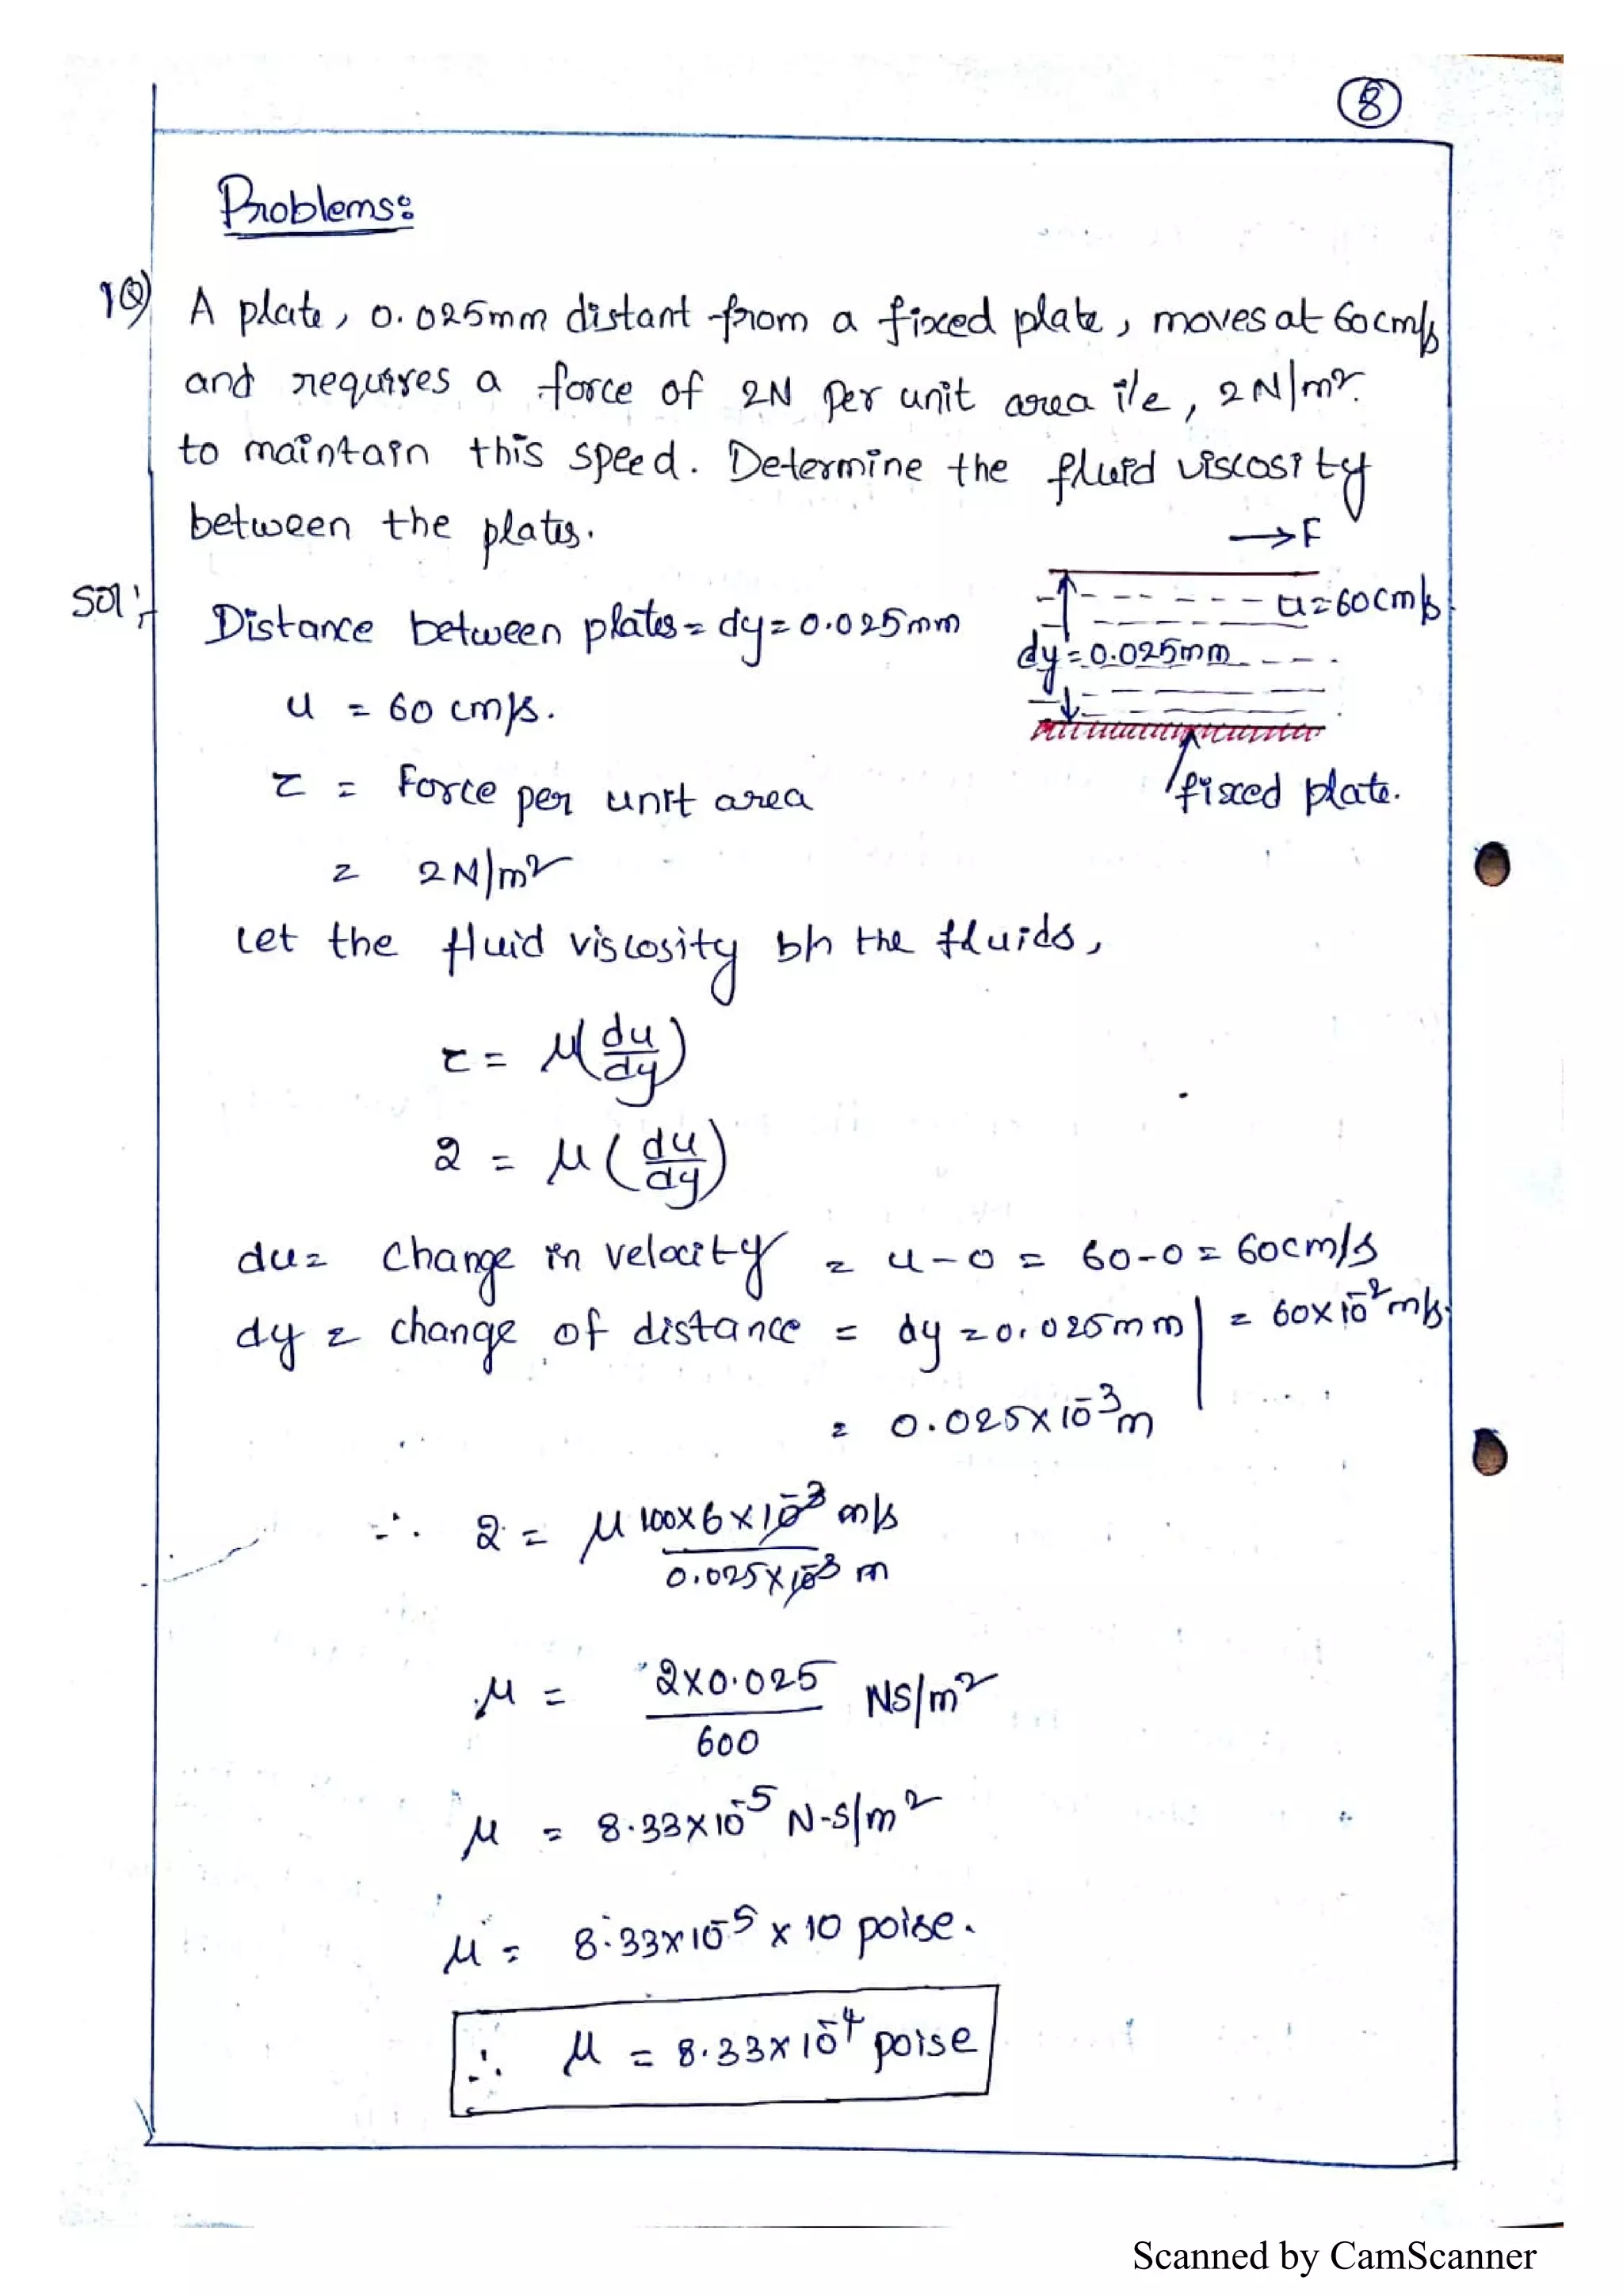 8
Problems:
1Q) A plate, 0.025mm distant from a fixed plate, moves at 60cm/s
and requires a force of 2N per unit area i/e, 2N/m².
to maintain this speed. Determine the fluid viscosity
between the plates.
→F
Sol:-
Distance between plates = dy = 0.025mm
u = 60cm/s
dy = 0.025mm
u = 60 cm/s.
fixed plate.
τ = Force per unit area
= 2N/m²
Let the fluid viscosity b/n the fluids,
τ = μ(du/dy)
2 = μ(du/dy)
du = change in velocity = u-0 = 60-0 = 60cm/s
dy = change of distance = dy = 0.025mm | = 60×10⁻² m/s.
= 0.025×10⁻³m
∴ 2 = μ 100×6×10⁻³ m/s
0.025×10⁻³ m
μ = 2×0.025 NS/m²
600
μ = 8.33×10⁻⁵ N-S/m²
μ = 8.33×10⁻⁵ × 10 poise.
∴ μ = 8.33×10⁻⁴ poise
Scanned by CamScanner